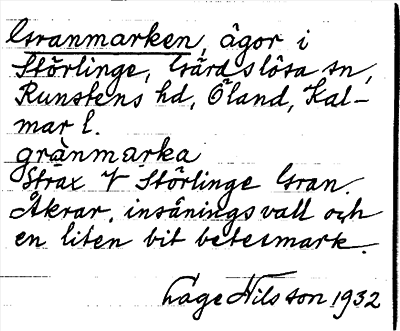 Granmarken, ägor i
Störlinge, Gärdslösa sn,
Runstens hd, Öland, Kal-
mar l.
grànmarka
Strax V Störlinge Gran.
Åkrar, insåningsvall och
en liten bit betesmark.
Lage Nilsson 1932